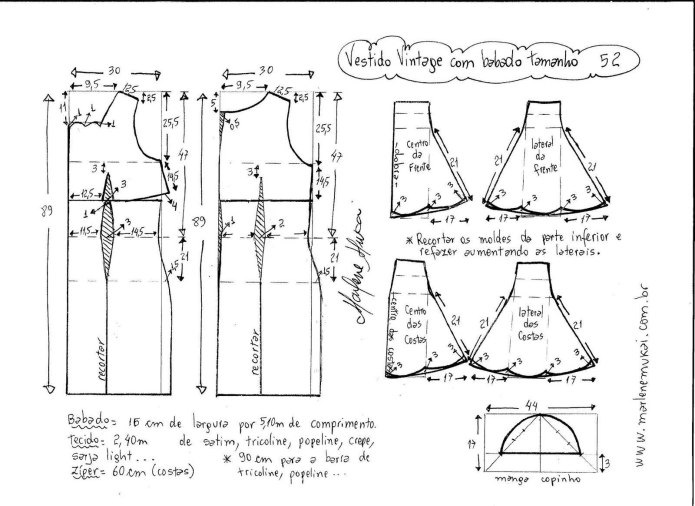 Vestido Vintage com babado tamanho 52
30
9,5
12,5
2,5
11
1
1
1
25,5
47
3
14,5
89
12,5
3
4
1
3
11,5
14,5
21
1,5
recortar
30
9,5
12,5
2,5
5
0,5
25,5
47
3
14,5
89
1
2
21
1,5
recortar
Marlene Mukai
- dobra -
Centro
da
Frente
21
3
3
17
lateral
da
frente
21
21
3
3
3
17
* Recortar os moldes da parte inferior e
refazer aumentando as laterais.
centro das costas
Centro
das
Costas
21
3
3
3
17
lateral
das
Costas
21
21
3
3
3
17
17
44
17
3
manga copinho
www.marlenemukai.com.br
Babado= 15 cm de largura por 5,10m de comprimento.
Tecido= 2,40m de setim, tricoline, popeline, crepe,
sarja light ... * 90 cm para a barra de
Zíper= 60 cm (costas) tricoline, popeline ...